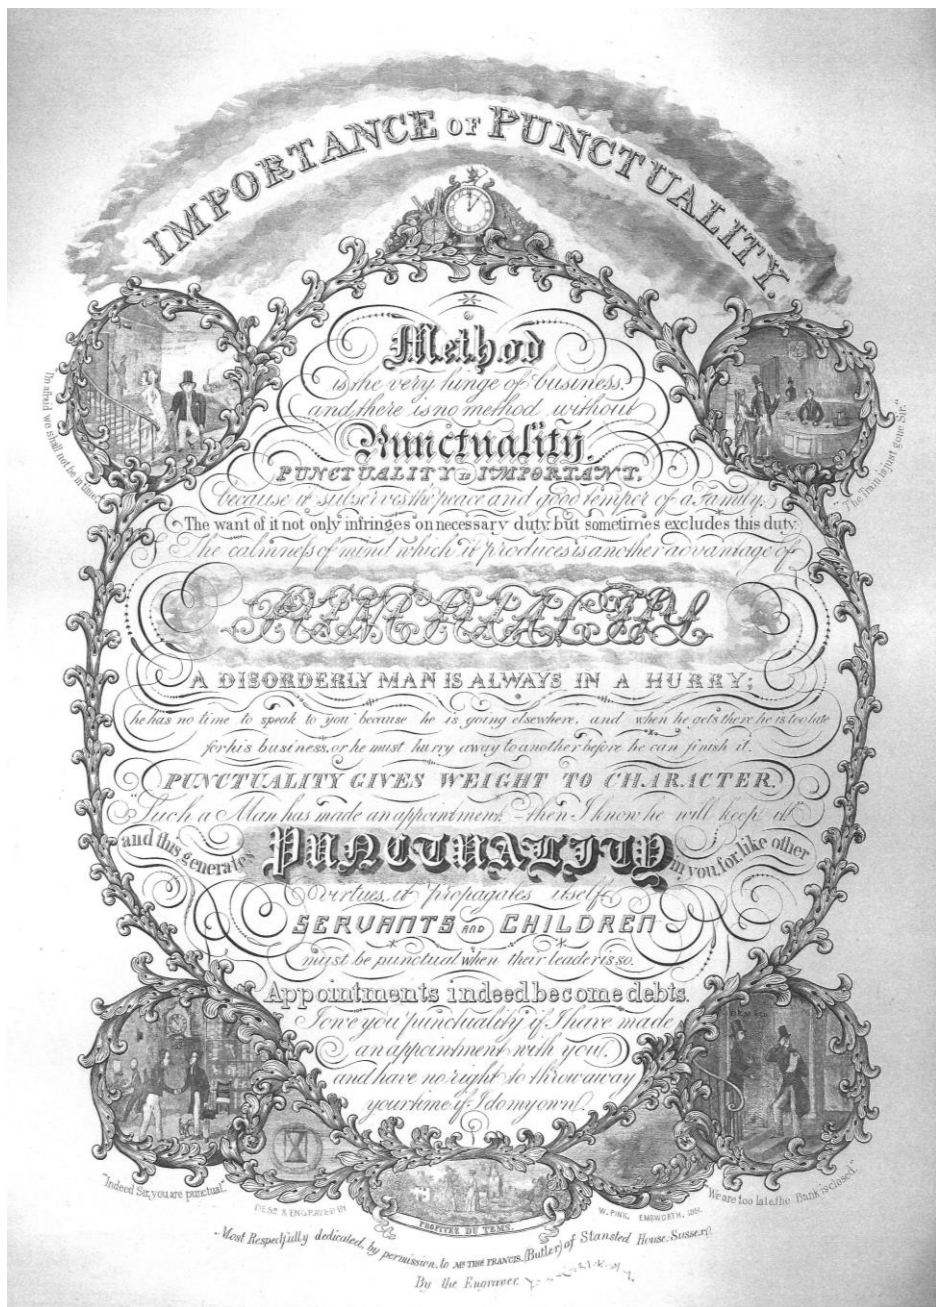 IMPORTANCE OF PUNCTUALITY.
Method
is the very hinge of business,
and there is no method without
Punctuality.
PUNCTUALITY IS IMPORTANT,
because it subserves the peace and good temper of a family.
The want of it not only infringes on necessary duty but sometimes excludes this duty.
The calmness of mind which it produces is another advantage of
PUNCTUALITY
A DISORDERLY MAN IS ALWAYS IN A HURRY;
he has no time to speak to you because he is going elsewhere, and when he gets there he is too late
for his business, or he must hurry away to another before he can finish it.
PUNCTUALITY GIVES WEIGHT TO CHARACTER.
"Such a Man has made an appointment,—then I know he will keep it"
and this generates PUNCTUALITY in you, for, like other
virtues, it propagates itself.
SERVANTS AND CHILDREN
must be punctual when their leader is so.
Appointments indeed become debts.
I owe you punctuality if I have made
an appointment with you,
and have no right to throw away
your time if I do my own.
I'm afraid we shall not be in time.
"The Train is just gone Sir."
"Indeed Sir, you are punctual."
"We are too late, the Bank is closed."
PROFITEZ DU TEMS.
DESD. & ENGRAVED BY W. PINK, EMSWORTH, 1851.
Most Respectfully dedicated, by permission, to MR. THOS. FRANCIS, (Butler) of Stansted House, Sussex,
By the Engraver.